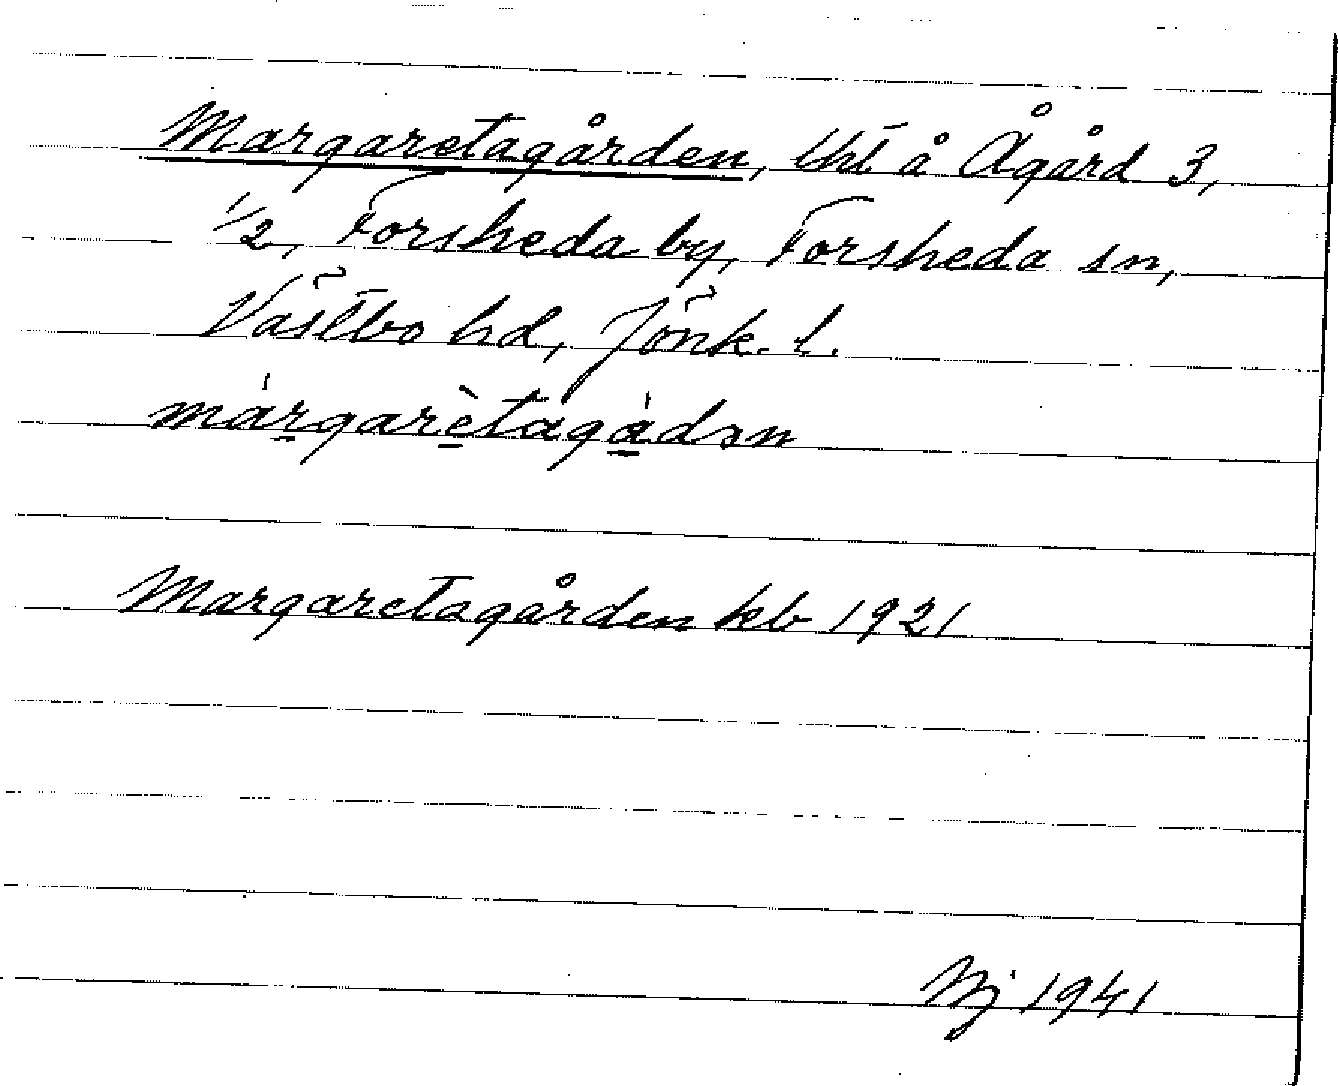 Margaretagården, lht å Ågård 3,
1/2, Forsheda by, Forsheda sn,
Västbo hd, Jönk. l.
márgarètagådən
Margaretagården kb 1921
Nj 1941